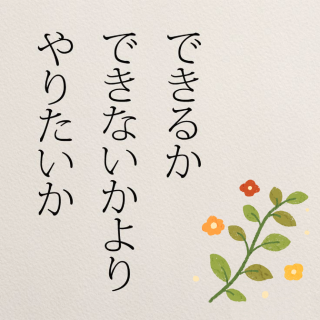 できるか
できないかより
やりたいか